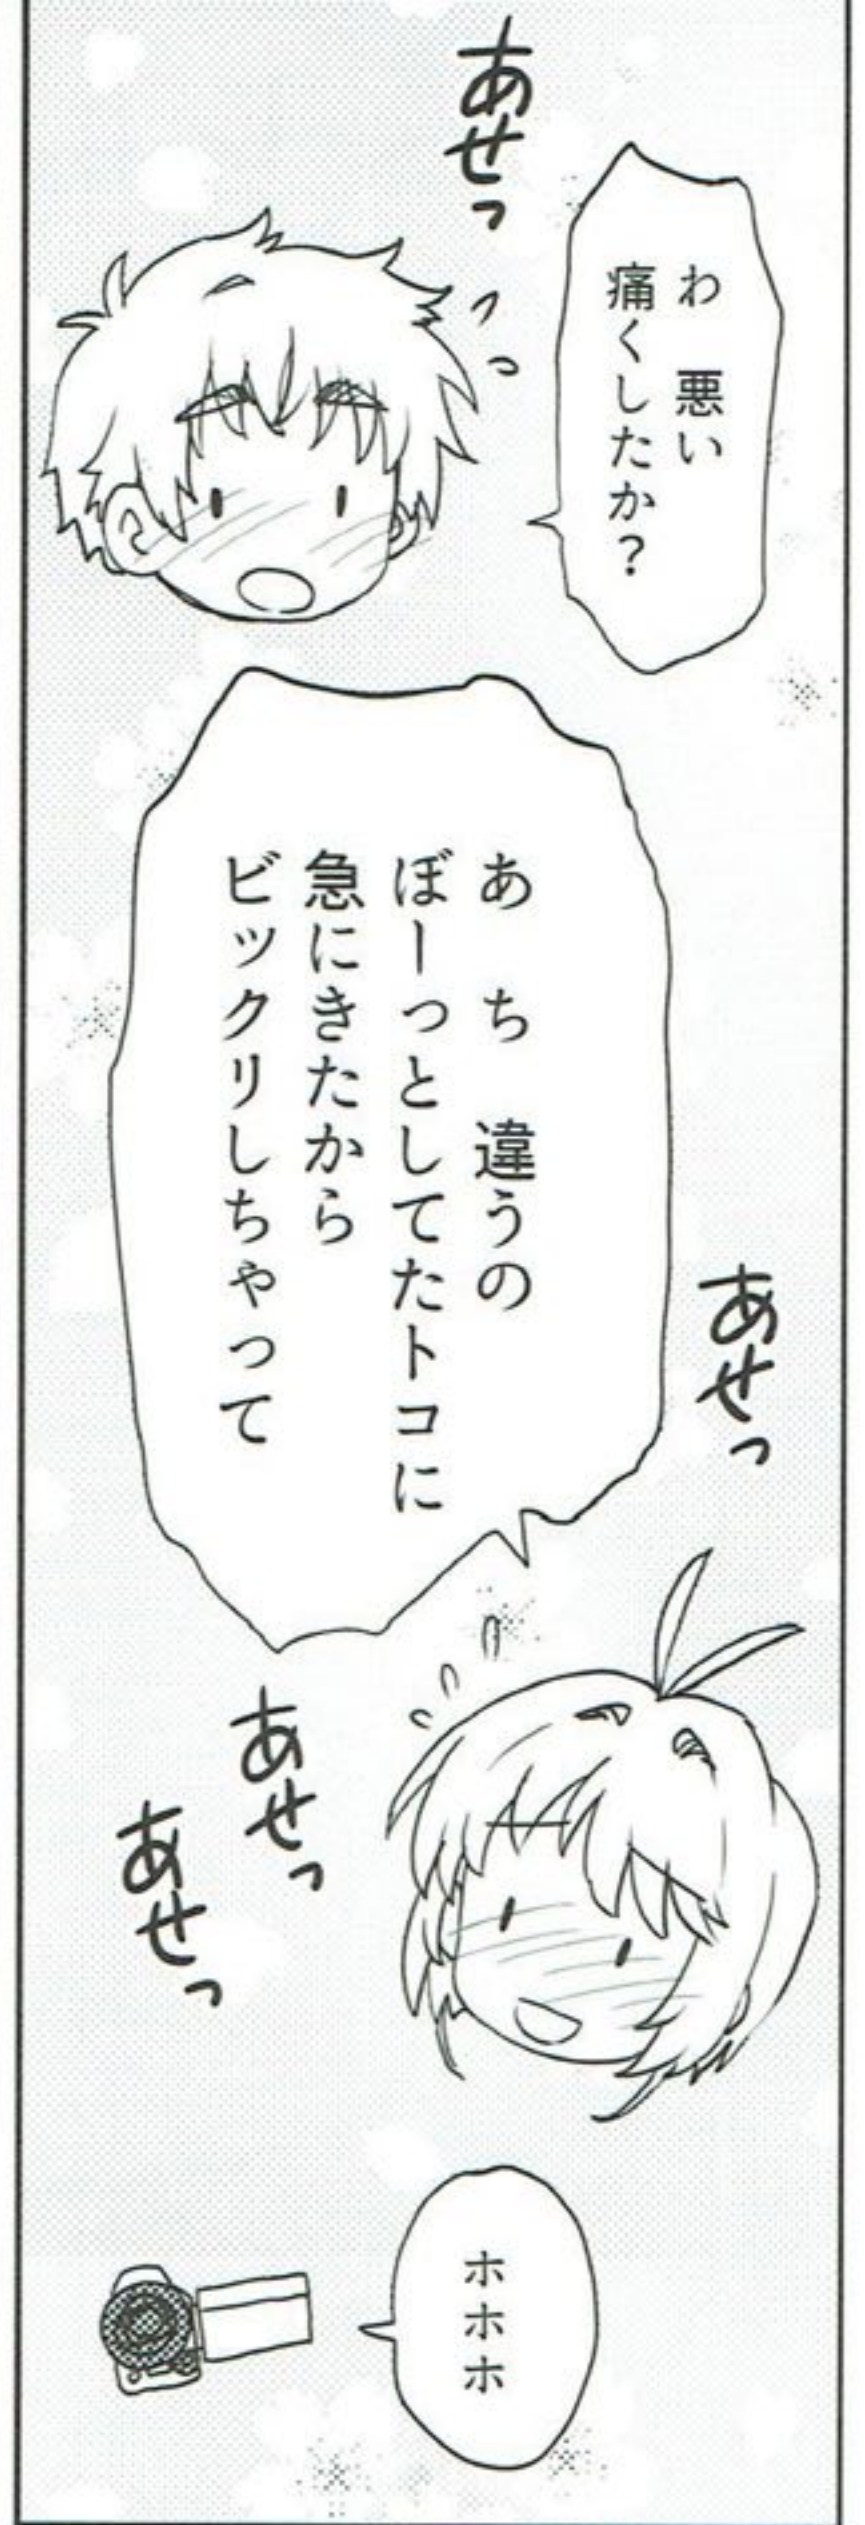 わ　悪い
痛くしたか？
あせっ
あ　ち　違うの
ぼーっとしてたトコに
急にきたから
ビックリしちゃって
あせっ
あせっ
あせっ
ホホホ